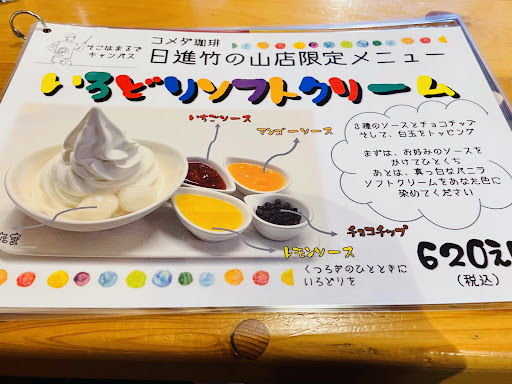 そこはまるで
キャンバス
コメダ珈琲
日進竹の山店限定メニュー
いろどりソフトクリーム
いちごソース
マンゴーソース
3種のソースとチョコチップ
そして、白玉をトッピング
まずは、お好みのソースを
かけてひとくち
あとは、真っ白なバニラ
ソフトクリームをあなた色に
染めてください
チョコチップ
レモンソース
くつろぎのひとときに
いろどりを
620え
(税込)